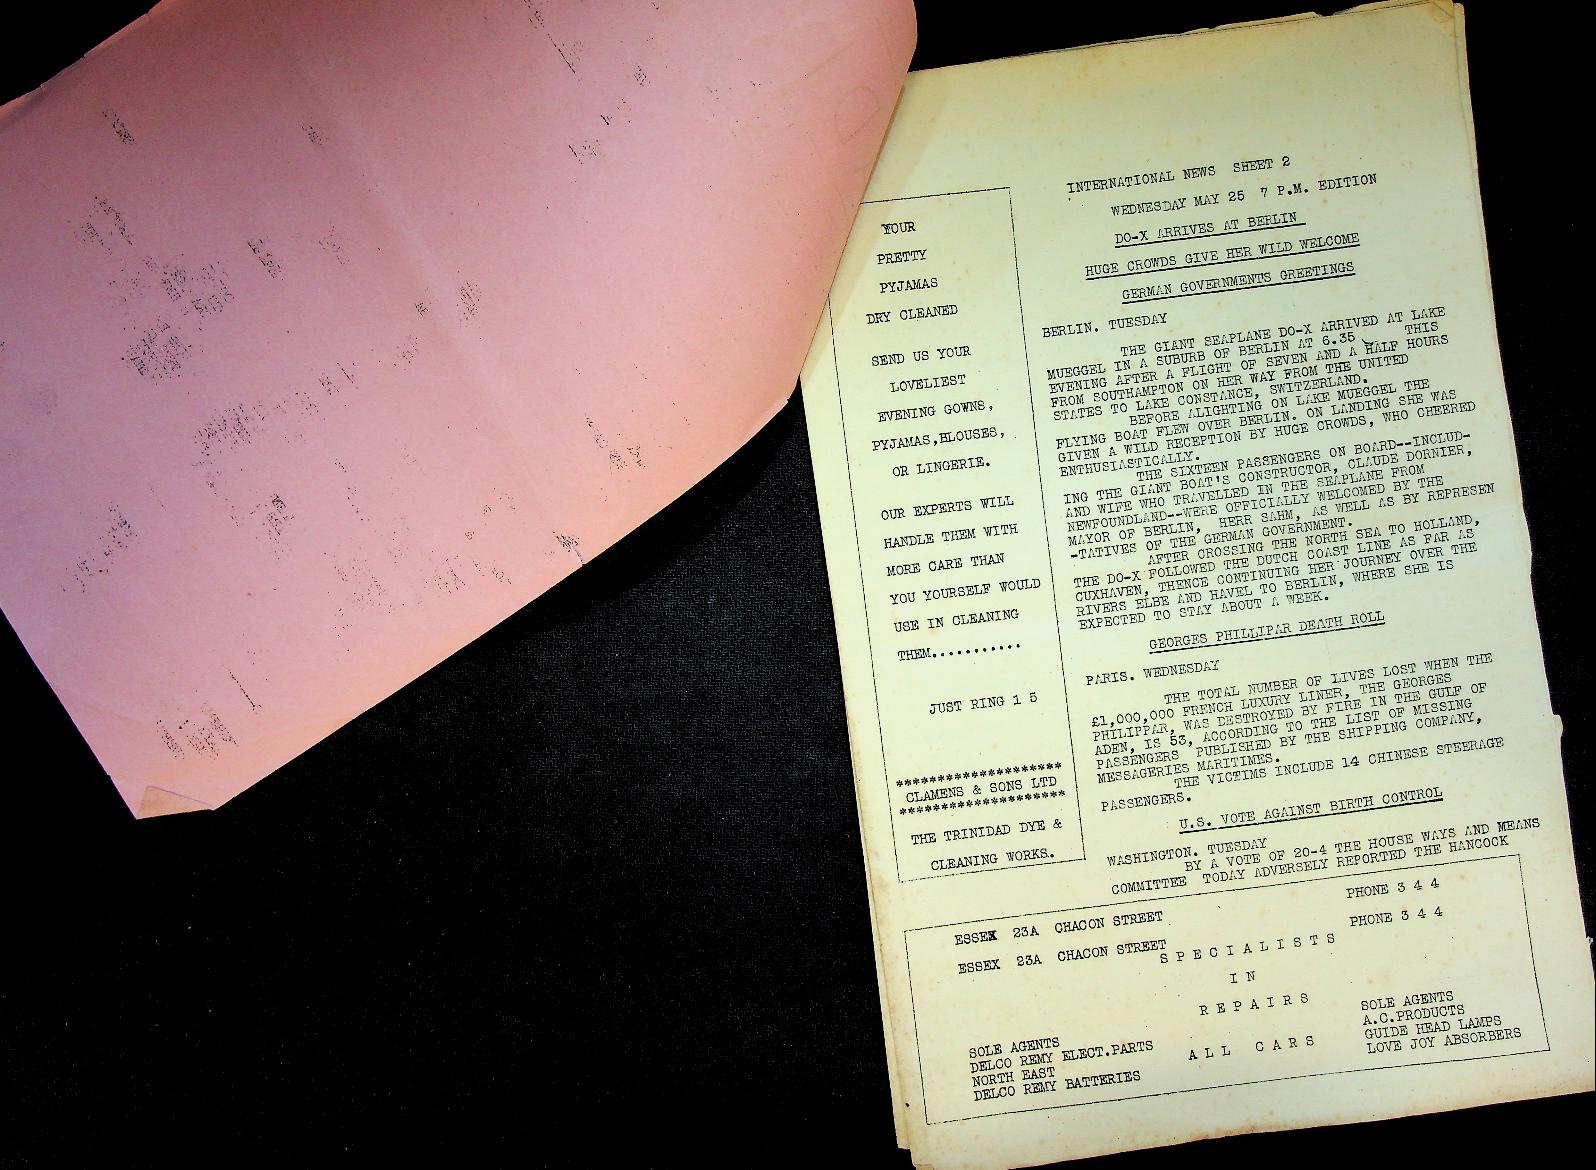 INTERNATIONAL NEWS SHEET 2
WEDNESDAY MAY 25 7 P.M. EDITION
DO-X ARRIVES AT BERLIN
HUGE CROWDS GIVE HER WILD WELCOME
GERMAN GOVERNMENTS GREETINGS
BERLIN. TUESDAY
THE GIANT SEAPLANE DO-X ARRIVED AT LAKE
MUEGGEL IN A SUBURB OF BERLIN AT 6.35 THIS
EVENING AFTER A FLIGHT OF SEVEN AND A HALF HOURS
FROM SOUTHAMPTON ON HER WAY FROM THE UNITED
STATES TO LAKE CONSTANCE, SWITZERLAND.
BEFORE ALIGHTING ON LAKE MUEGGEL THE
FLYING BOAT FLEW OVER BERLIN. ON LANDING SHE WAS
GIVEN A WILD RECEPTION BY HUGE CROWDS, WHO CHEERED
ENTHUSIASTICALLY.
THE SIXTEEN PASSENGERS ON BOARD--INCLUD-
ING THE GIANT BOAT'S CONSTRUCTOR, CLAUDE DORNIER,
AND WIFE WHO TRAVELLED IN THE SEAPLANE FROM
NEWFOUNDLAND--WERE OFFICIALLY WELCOMED BY THE
MAYOR OF BERLIN, HERR SAHM, AS WELL AS BY REPRESEN
-TATIVES OF THE GERMAN GOVERNMENT.
AFTER CROSSING THE NORTH SEA TO HOLLAND,
THE DO-X FOLLOWED THE DUTCH COAST LINE AS FAR AS
CUXHAVEN, THENCE CONTINUING HER JOURNEY OVER THE
RIVERS ELBE AND HAVEL TO BERLIN, WHERE SHE IS
EXPECTED TO STAY ABOUT A WEEK.
GEORGES PHILLIPAR DEATH ROLL
PARIS. WEDNESDAY
THE TOTAL NUMBER OF LIVES LOST WHEN THE
£1,000,000 FRENCH LUXURY LINER, THE GEORGES
PHILIPPAR, WAS DESTROYED BY FIRE IN THE GULF OF
ADEN, IS 53, ACCORDING TO THE LIST OF MISSING
PASSENGERS PUBLISHED BY THE SHIPPING COMPANY,
MESSAGERIES MARITIMES.
THE VICTIMS INCLUDE 14 CHINESE STEERAGE
PASSENGERS.
U.S. VOTE AGAINST BIRTH CONTROL
WASHINGTON. TUESDAY
BY A VOTE OF 20-4 THE HOUSE WAYS AND MEANS
COMMITTEE TODAY ADVERSELY REPORTED THE HANCOCK
YOUR
PRETTY
PYJAMAS
DRY CLEANED
SEND US YOUR
LOVELIEST
EVENING GOWNS,
PYJAMAS,BLOUSES,
OR LINGERIE.
OUR EXPERTS WILL
HANDLE THEM WITH
MORE CARE THAN
YOU YOURSELF WOULD
USE IN CLEANING
THEM...........
JUST RING 1 5
********************
CLAMENS & SONS LTD
********************
THE TRINIDAD DYE &
CLEANING WORKS.
ESSEX 23A CHACON STREET PHONE 3 4 4
ESSEX 23A CHACON STREET PHONE 3 4 4
S P E C I A L I S T S
I N
R E P A I R S
A L L C A R S
SOLE AGENTS
DELCO REMY ELECT.PARTS
NORTH EAST
DELCO REMY BATTERIES
SOLE AGENTS
A.C.PRODUCTS
GUIDE HEAD LAMPS
LOVE JOY ABSORBERS